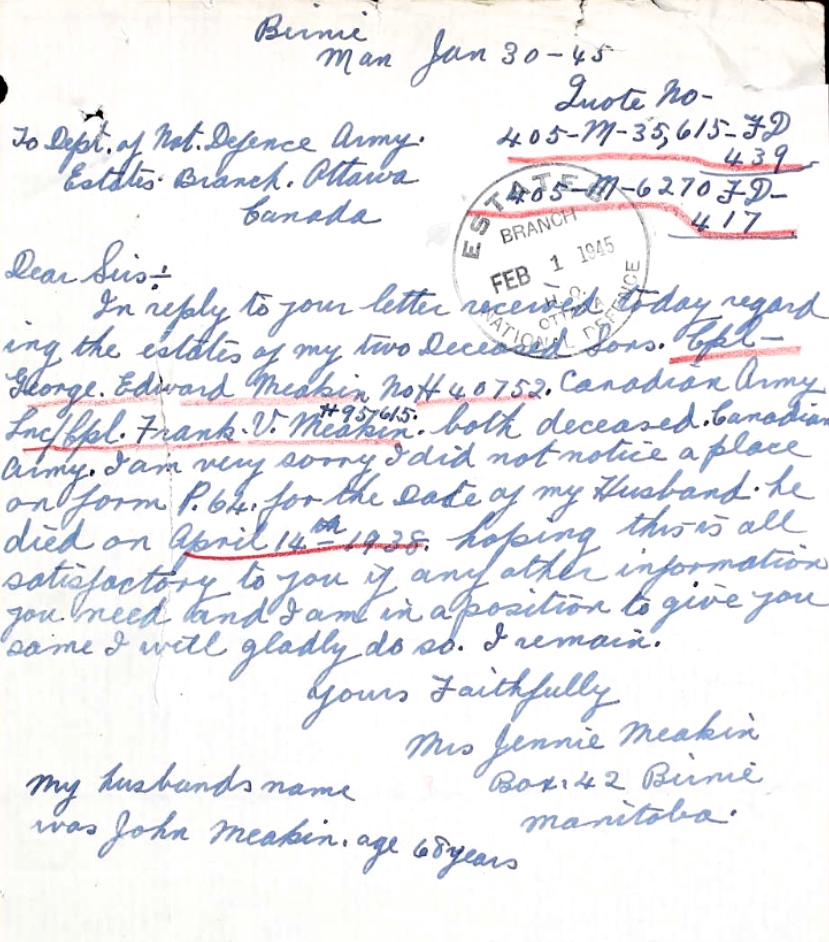 Birnie
Man Jan 30-45
Quote No-
405-M-35,615-FD
439
405-M-6270 FD-
417
To Dept. of Nat. Defence Army.
Estates Branch. Ottawa
Canada
ESTATES
BRANCH
FEB 1 1945
H.Q.
OTTAWA
NATIONAL DEFENCE
Dear Sirs:-
In reply to your letter received today regard
ing the estates of my two Deceased Sons. Cpl-
George. Edward Meakin No H 40752. Canadian Army
H 95615.
Lnc/Cpl. Frank. V. Meakin. both deceased. Canadian
Army. I am very sorry I did not notice a place
on form P. 64. for the Date of my Husband. he
died on April 14th 1938. hoping this is all
satisfactory to you if any other information
you need and I am in a position to give you
same I will gladly do so. I remain.
Yours Faithfully
Mrs Jennie Meakin
Box. 42 Birnie
Manitoba.
My husbands name
was John Meakin. age 68 years